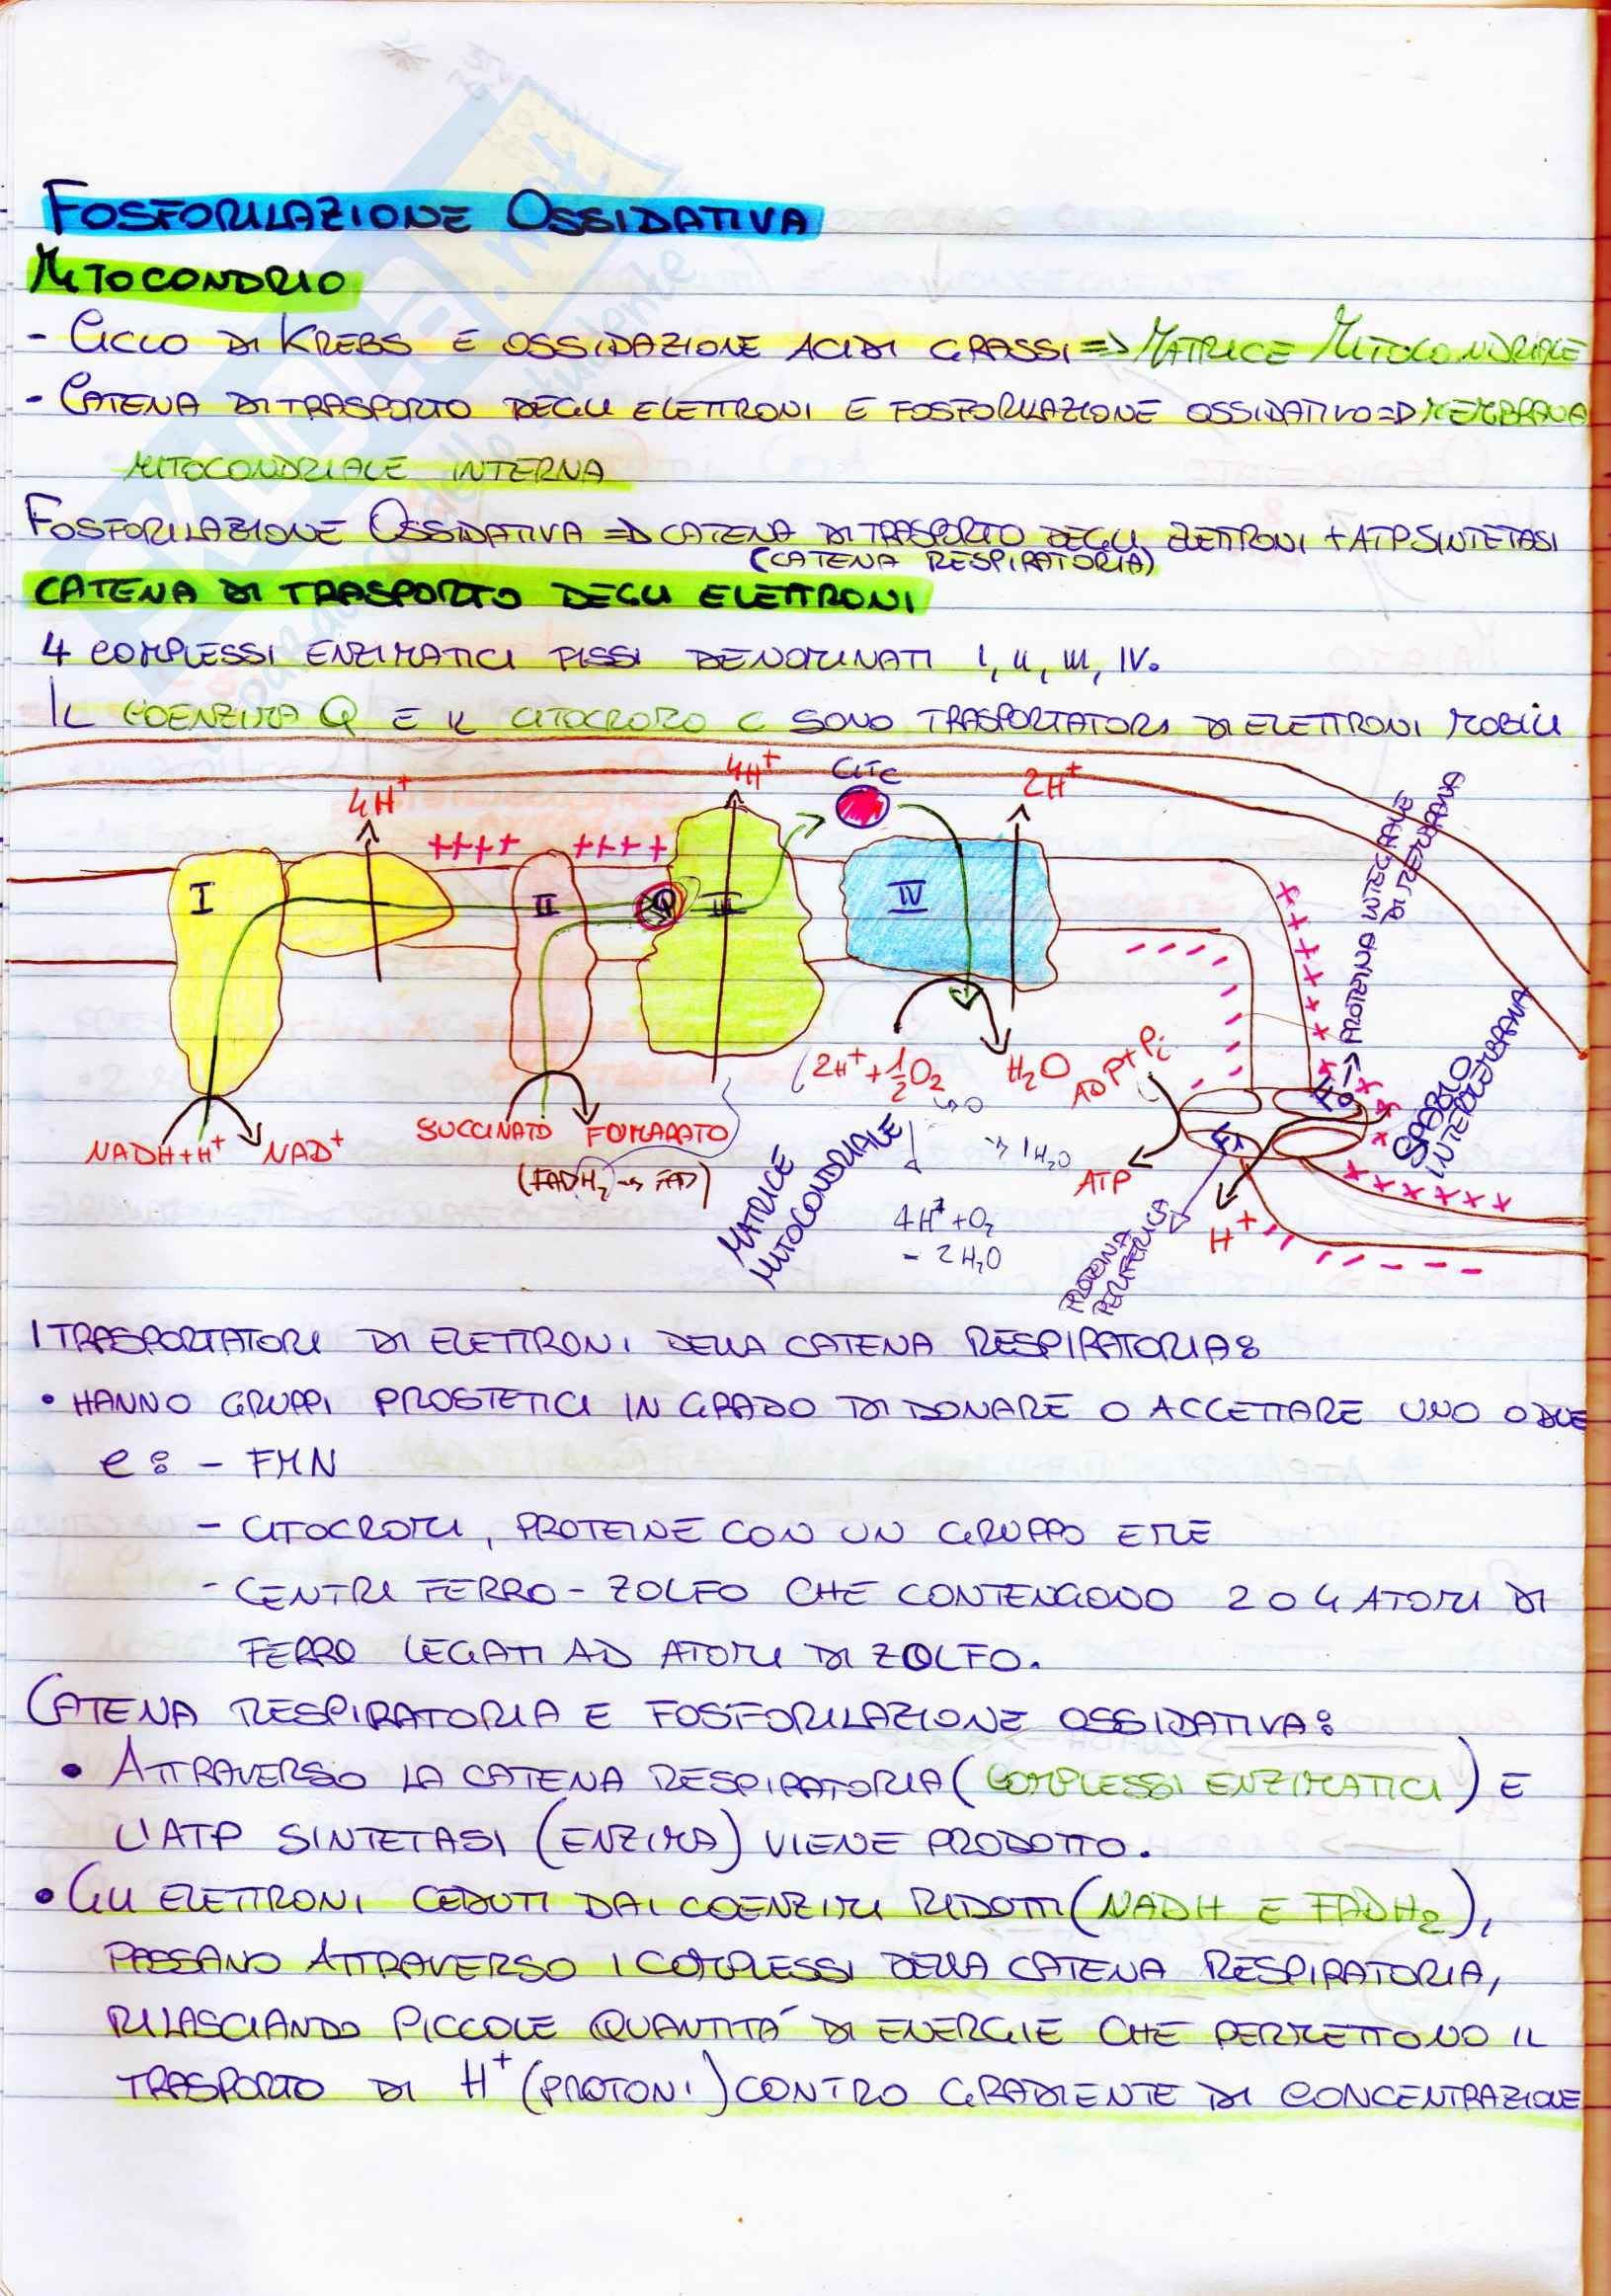 FOSFORILAZIONE OSSIDATIVA
MITOCONDRIO
- CICLO DI KREBS E OSSIDAZIONE ACIDI GRASSI => MATRICE MITOCONDRIALE
- CATENA DI TRASPORTO DEGLI ELETTRONI E FOSFORILAZIONE OSSIDATIVO => MEMBRANA
MITOCONDRIALE INTERNA
FOSFORILAZIONE OSSIDATIVA => CATENA DI TRASPORTO DEGLI ELETTRONI + ATP SINTETASI
(CATENA RESPIRATORIA)
CATENA DI TRASPORTO DEGLI ELETTRONI
4 COMPLESSI ENZIMATICI FISSI DENOMINATI I, II, III, IV.
IL COENZIMA Q E IL CITOCROMO C SONO TRASPORTATORI DI ELETTRONI MOBILI
4H⁺
4H⁺
Cit c
2H⁺
++++
++++
I
II
Q
III
IV
F₀ → PROTEINA INTEGRALE
DI MEMBRANA
SPAZIO
INTERMEMBRANA
2H⁺ + ½O₂
H₂O
ADP + Pi
F₁
ATP
H⁺
PROTEINA
PERIFERICA
NADH + H⁺
NAD⁺
SUCCINATO
FUMARATO
(FADH₂ → FAD)
MATRICE
MITOCONDRIALE
→ 1H₂O
4H⁺ + O₂
- 2H₂O
I TRASPORTATORI DI ELETTRONI DELLA CATENA RESPIRATORIA:
• HANNO GRUPPI PROSTETICI IN GRADO DI DONARE O ACCETTARE UNO O DUE
e: - FMN
- CITOCROMI, PROTEINE CON UN GRUPPO EME
- CENTRI FERRO-ZOLFO CHE CONTENGONO 2 O 4 ATOMI DI
FERRO LEGATI AD ATOMI DI ZOLFO.
CATENA RESPIRATORIA E FOSFORILAZIONE OSSIDATIVA:
• ATTRAVERSO LA CATENA RESPIRATORIA (COMPLESSI ENZIMATICI) E
L'ATP SINTETASI (ENZIMA) VIENE PRODOTTO.
• GLI ELETTRONI CEDUTI DAI COENZIMI RIDOTTI (NADH E FADH₂),
PASSANO ATTRAVERSO I COMPLESSI DELLA CATENA RESPIRATORIA,
RILASCIANDO PICCOLE QUANTITÀ DI ENERGIE CHE PERMETTONO IL
TRASPORTO DI H⁺ (PROTONI) CONTRO GRADIENTE DI CONCENTRAZIONE